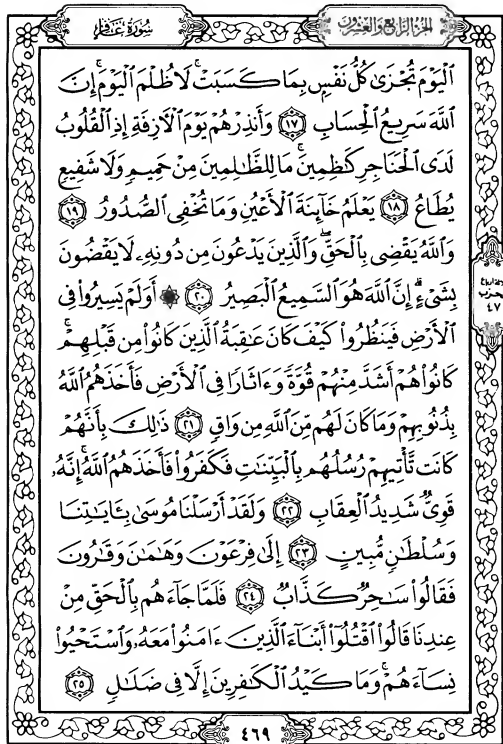 الجزء الرابع والعشرون
سورة غافر
ٱلۡيَوۡمَ تُجۡزَىٰ كُلُّ نَفۡسِۭ بِمَا كَسَبَتۡۚ لَا ظُلۡمَ ٱلۡيَوۡمَۚ إِنَّ
ٱللَّهَ سَرِيعُ ٱلۡحِسَابِ ١٧ وَأَنذِرۡهُمۡ يَوۡمَ ٱلۡأٓزِفَةِ إِذِ ٱلۡقُلُوبُ
لَدَى ٱلۡحَنَاجِرِ كَٰظِمِينَۚ مَا لِلظَّٰلِمِينَ مِنۡ حَمِيمٖ وَلَا شَفِيعٖ
يُطَاعُ ١٨ يَعۡلَمُ خَآئِنَةَ ٱلۡأَعۡيُنِ وَمَا تُخۡفِي ٱلصُّدُورُ ١٩
وَٱللَّهُ يَقۡضِي بِٱلۡحَقِّۖ وَٱلَّذِينَ يَدۡعُونَ مِن دُونِهِۦ لَا يَقۡضُونَ
بِشَيۡءٍۗ إِنَّ ٱللَّهَ هُوَ ٱلسَّمِيعُ ٱلۡبَصِيرُ ٢٠ ۞ أَوَلَمۡ يَسِيرُواْ فِي
ٱلۡأَرۡضِ فَيَنظُرُواْ كَيۡفَ كَانَ عَٰقِبَةُ ٱلَّذِينَ كَانُواْ مِن قَبۡلِهِمۡۚ
كَانُواْ هُمۡ أَشَدَّ مِنۡهُمۡ قُوَّةٗ وَءَاثَارٗا فِي ٱلۡأَرۡضِ فَأَخَذَهُمُ ٱللَّهُ
بِذُنُوبِهِمۡ وَمَا كَانَ لَهُم مِّنَ ٱللَّهِ مِن وَاقٖ ٢١ ذَٰلِكَ بِأَنَّهُمۡ
كَانَت تَّأۡتِيهِمۡ رُسُلُهُم بِٱلۡبَيِّنَٰتِ فَكَفَرُواْ فَأَخَذَهُمُ ٱللَّهُۚ إِنَّهُۥ
قَوِيّٞ شَدِيدُ ٱلۡعِقَابِ ٢٢ وَلَقَدۡ أَرۡسَلۡنَا مُوسَىٰ بِـَٔايَٰتِنَا
وَسُلۡطَٰنٖ مُّبِينٍ ٢٣ إِلَىٰ فِرۡعَوۡنَ وَهَٰمَٰنَ وَقَٰرُونَ
فَقَالُواْ سَٰحِرٞ كَذَّابٞ ٢٤ فَلَمَّا جَآءَهُم بِٱلۡحَقِّ مِنۡ
عِندِنَا قَالُواْ ٱقۡتُلُوٓاْ أَبۡنَآءَ ٱلَّذِينَ ءَامَنُواْ مَعَهُۥ وَٱسۡتَحۡيُواْ
نِسَآءَهُمۡۚ وَمَا كَيۡدُ ٱلۡكَٰفِرِينَ إِلَّا فِي ضَلَٰلٖ ٢٥
حزب
٤٧
٤٦٩